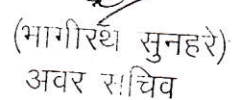 (भागीरथ सुनहरे)
अवर सचिव